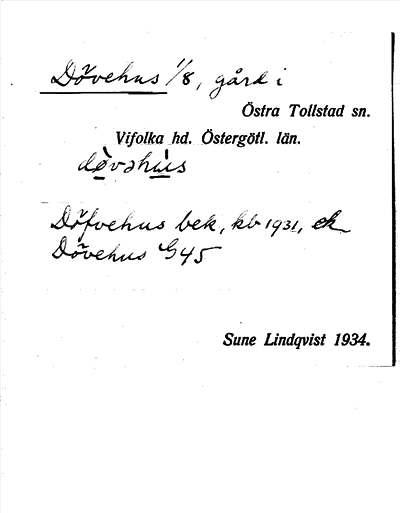 Dövehus 1/8, gård i
Östra Tollstad sn.
Vifolka hd. Östergötl. län.
dø̀vəhùs
Döfvehus bek, kb 1931, ek
Dövehus G45
Sune Lindqvist 1934.